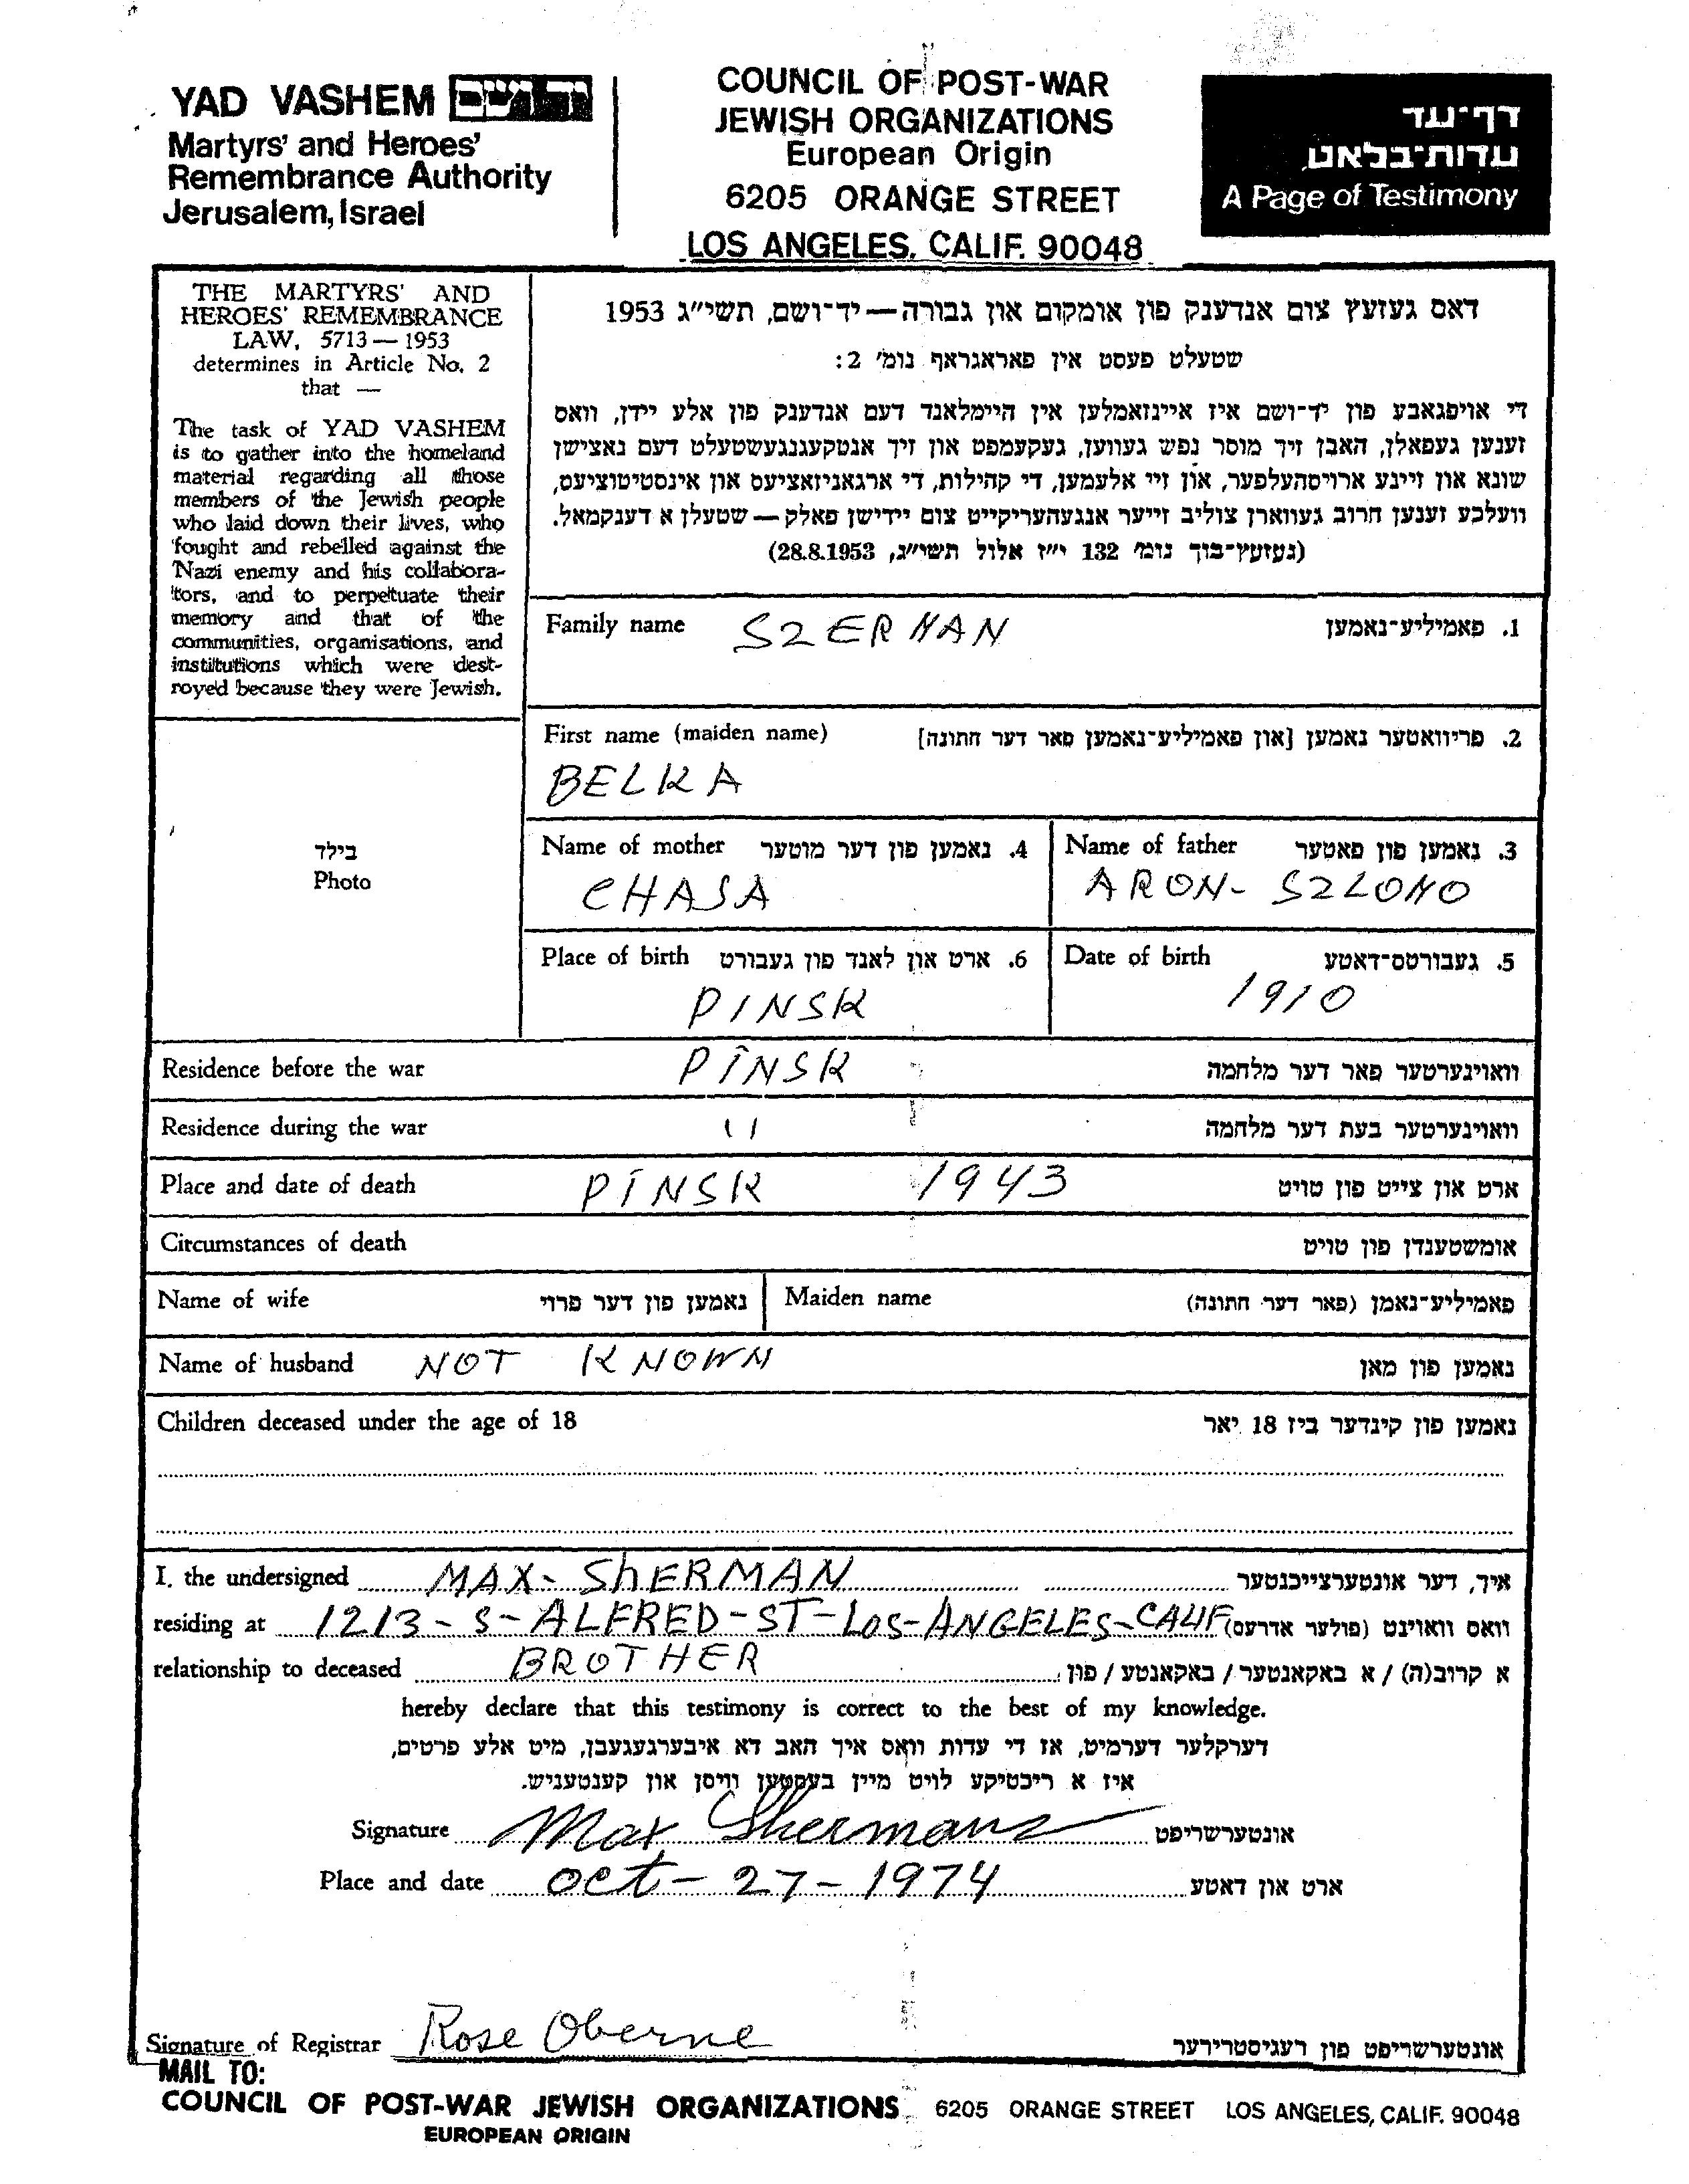 YAD VASHEM יד ושם
Martyrs' and Heroes'
Remembrance Authority
Jerusalem, Israel
COUNCIL OF POST-WAR
JEWISH ORGANIZATIONS
European Origin
6205 ORANGE STREET
LOS ANGELES, CALIF. 90048
דף־עד
עדות־בלאט
A Page of Testimony
THE MARTYRS' AND
HEROES' REMEMBRANCE
LAW, 5713 — 1953
determines in Article No. 2
that —
The task of YAD VASHEM
is to gather into the homeland
material regarding all those
members of the Jewish people
who laid down their lives, who
fought and rebelled against the
Nazi enemy and his collabora-
tors, and to perpetuate their
memory and that of the
communities, organisations, and
institutions which were dest-
royed because they were Jewish.
דאס געזעץ צום אנדענק פון אומקום און גבורה — יד־ושם, תשי"ג 1953
שטעלט פעסט אין פאראגראף נומ' 2:
די אויפגאבע פון יד־ושם איז איינזאמלען אין היימלאנד דעם אנדענק פון אלע יידן, וואס
זענען געפאלן, האבן זיך מוסר נפש געווען, געקעמפט און זיך אנטקעגנגעשטעלט דעם נאצישן
שונא און זיינע ארויסהעלפער, און זיי אלעמען, די קהילות, די ארגאניזאציעס און אינסטיטוציעס,
וועלכע זענען חרוב געווארן צוליב זייער אנגעהעריקייט צום יידישן פאלק — שטעלן א דענקמאל.
(געזעץ־בוך נומ' 132 י"ז אלול תשי"ג, 28.8.1953)
Family name SZERMAN 1. פאמיליע־נאמען
First name (maiden name) 2. פריוואטער נאמען [און פאמיליע־נאמען פאר דער חתונה]
BELKA
בילד
Photo
Name of mother 4. נאמען פון דער מוטער
CHASA
Name of father 3. נאמען פון פאטער
ARON- SZLOMO
Place of birth 6. ארט און לאנד פון געבורט
PINSK
Date of birth 5. געבורטס־דאטע
1910
Residence before the war PINSK וואוינערטער פאר דער מלחמה
Residence during the war 11 וואוינערטער בעת דער מלחמה
Place and date of death PINSK 1943 ארט און צייט פון טויט
Circumstances of death אומשטענדן פון טויט
Name of wife נאמען פון דער פרוי Maiden name פאמיליע־נאמן (פאר דער חתונה)
Name of husband NOT KNOWN נאמען פון מאן
Children deceased under the age of 18 נאמען פון קינדער ביז 18 יאר
I, the undersigned MAX- ShERMAN איך, דער אונטערצייכנטער
residing at 1213 - S - ALFRED - ST - LOS - ANGELES - CALIF וואס וואוינט (פולער אדרעס)
relationship to deceased BROTHER א קרוב(ה) / א באקאנטער / באקאנטע / פון
hereby declare that this testimony is correct to the best of my knowledge.
דערקלער דערמיט, אז די עדות וואס איך האב דא איבערגעגעבן, מיט אלע פרטים,
איז א ריכטיקע לויט מיין בעסטען וויסן און קענטעניש.
Signature Max Sherman אונטערשריפט
Place and date oct - 27 - 1974 ארט און דאטע
Signature of Registrar Rose Oberne אונטערשריפט פון רעגיסטרירער
MAIL TO:
COUNCIL OF POST-WAR JEWISH ORGANIZATIONS 6205 ORANGE STREET LOS ANGELES, CALIF. 90048
EUROPEAN ORIGIN